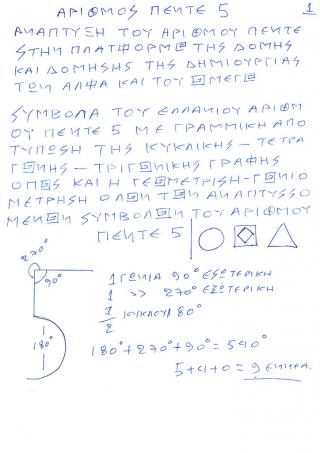 ΑΡΙΘΜΟΣ ΠΕΝΤΕ 5 1
ΑΝΑΠΤΥΞΗ ΤΟΥ ΑΡΙΘΜΟΥ ΠΕΝΤΕ
ΣΤΗΝ ΠΛΑΤΦΟΡΜΑ ΤΗΣ ΔΟΜΗΣ
ΚΑΙ ΔΟΜΗΣΗΣ ΤΗΣ ΔΗΜΙΟΥΡΓΙΑΣ
ΤΩΝ ΑΛΦΑ ΚΑΙ ΤΟΥ ΩΜΕΓΑ
ΣΥΜΒΟΛΑ ΤΟΥ ΕΛΛΑΝΙΟΥ ΑΡΙΘΜ
ΟΥ ΠΕΝΤΕ 5 ΜΕ ΓΡΑΜΜΙΚΗ ΑΠΟ
ΤΥΠΩΣΗ ΤΗΣ ΚΥΚΛΙΚΗΣ – ΤΕΤΡΑ
ΓΩΝΗΣ – ΤΡΙΓΩΝΙΚΗΣ ΓΡΑΦΗΣ
ΟΠΩΣ ΚΑΙ Η ΓΕΩΜΕΤΡΙΣΗ-ΓΩΝΙΟ
ΜΕΤΡΗΣΗ ΟΛΩΝ ΤΩΝ ΑΝΑΠΤΥΣΣΟ
ΜΕΝΩΝ ΣΥΜΒΟΛΩΝ ΤΟΥ ΑΡΙΘΜΟΥ
ΠΕΝΤΕ 5
270°
90°
180°
1 ΓΩΝΙΑ 90° ΕΣΩΤΕΡΙΚΗ
1 >> 270° ΕΞΩΤΕΡΙΚΗ
1/2 ΚΥΚΛΟΥ 180°
180°+270°+90°=540°
5+4+0=9 ΕΝΝΕΑ.